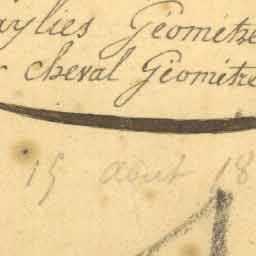 aylies Géomètre
cheval Géomètre
15 Aout 18